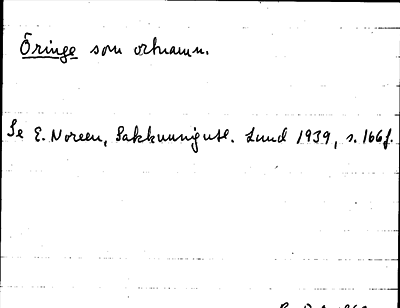 Öringe som ortnamn.
Se E. Noreen, Sakkunnigutl. Lund 1939, s. 166f.